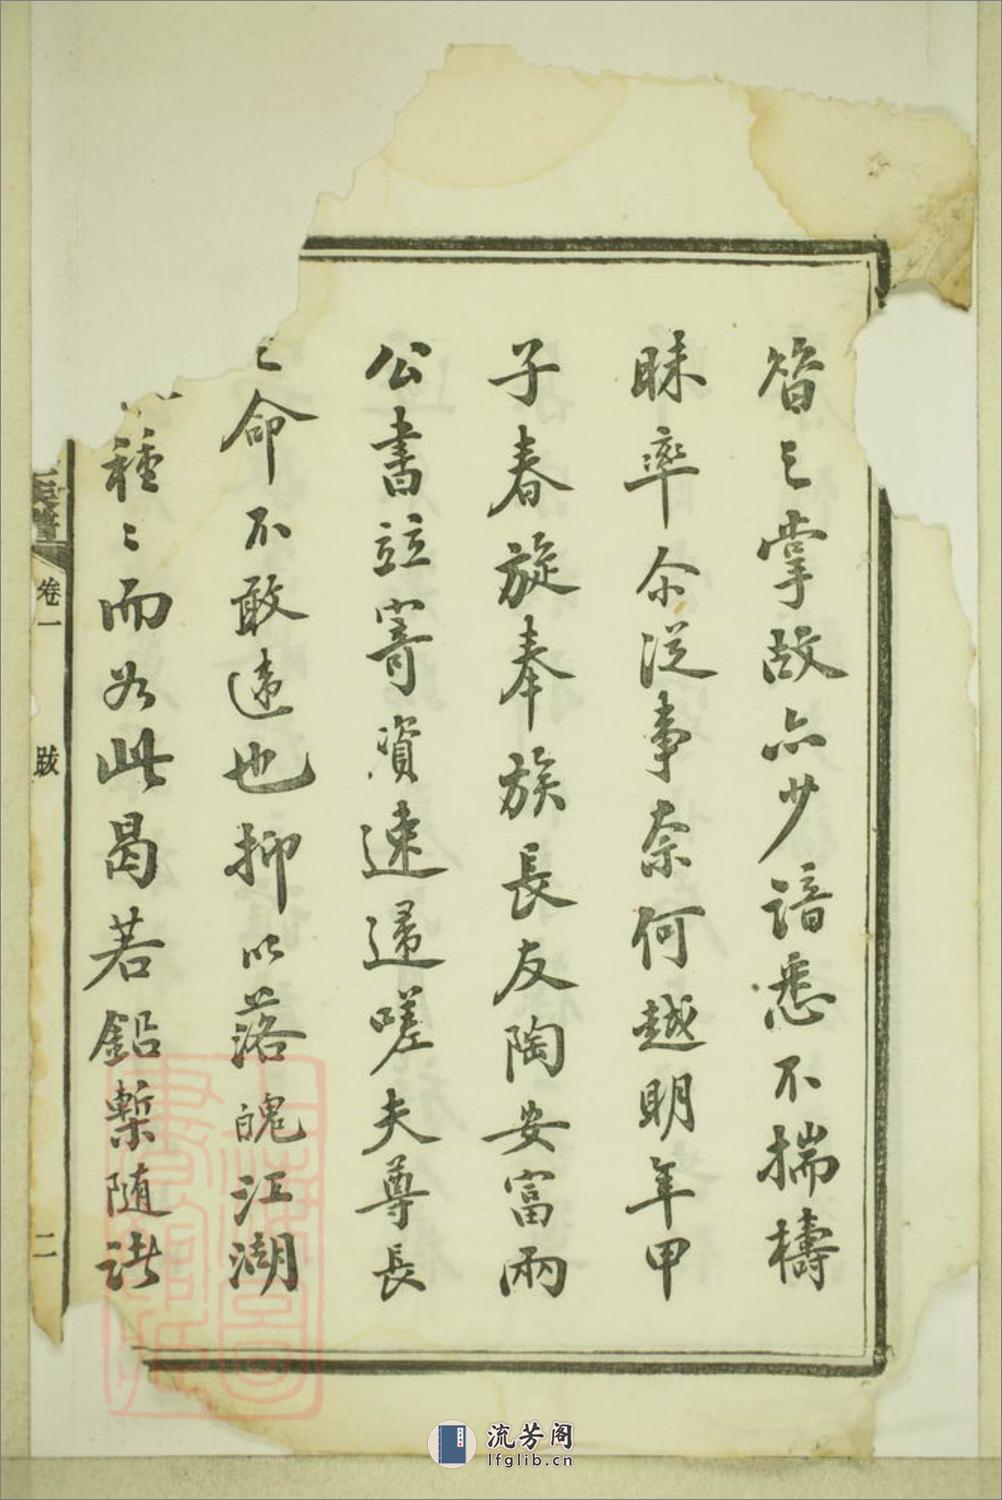 簪之掌故亦少諳悉不揣檮
昧率尒從事奈何越明年甲
子春旋奉族長友陶安富兩
公書竝寄資速還嗟夫尊長
之命不敢違也抑以落魄江湖
種〻而為此曷若鉛槧隨諸
卷一
跋
二
流芳阁
lfglib.cn